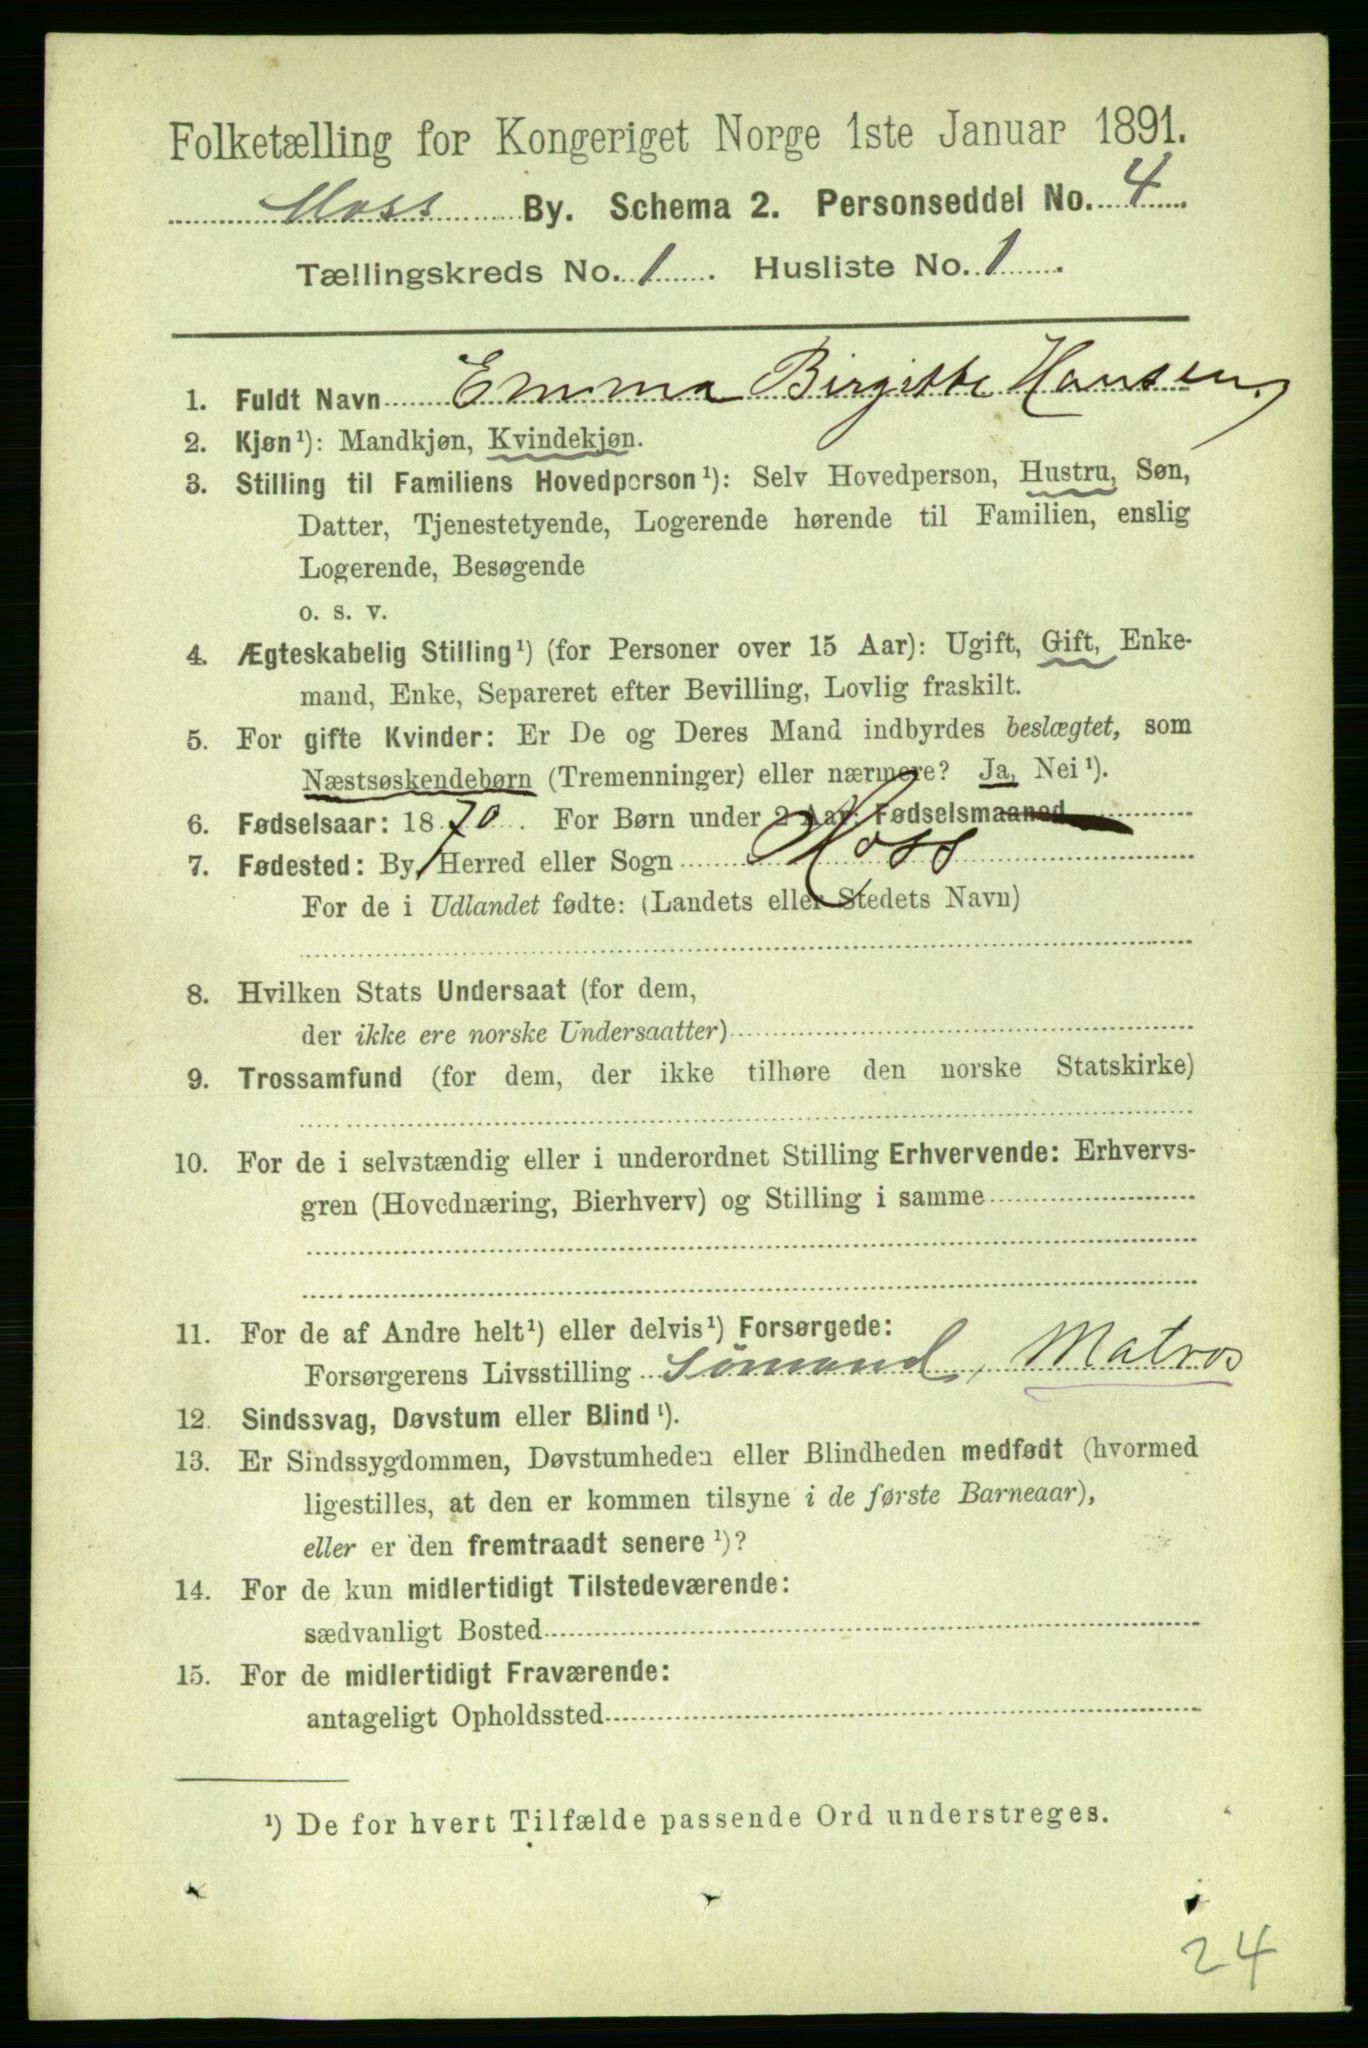 Folketælling for Kongeriget Norge 1ste Januar 1891.
Moss By. Schema 2. Personseddel No. 4
Tællingskreds No. 1. Husliste No. 1.
1. Fuldt Navn Emma Birgitte Hansen,
2. Kjøn¹): Mandkjøn, Kvindekjøn.
3. Stilling til Familiens Hovedperson¹): Selv Hovedperson, Hustru, Søn,
Datter, Tjenestetyende, Logerende hørende til Familien, enslig
Logerende, Besøgende
o. s. v.
4. Ægteskabelig Stilling¹) (for Personer over 15 Aar): Ugift, Gift, Enke-
mand, Enke, Separeret efter Bevilling, Lovlig fraskilt.
5. For gifte Kvinder: Er De og Deres Mand indbyrdes beslægtet, som
Næstsøskendebørn (Tremenninger) eller nærmere? Ja, Nei¹).
6. Fødselsaar: 1870. For Børn under 2 Aar: Fødselsmaaned
7. Fødested: By, Herred eller Sogn Moss
For de i Udlandet fødte: (Landets eller Stedets Navn)
8. Hvilken Stats Undersaat (for dem,
der ikke ere norske Undersaatter)
9. Trossamfund (for dem, der ikke tilhøre den norske Statskirke)
10. For de i selvstændig eller i underordnet Stilling Erhvervende: Erhvervs-
gren (Hovednæring, Bierhverv) og Stilling i samme
11. For de af Andre helt¹) eller delvis¹) Forsørgede:
Forsørgerens Livsstilling Sømand, Matros
12. Sindssvag, Døvstum eller Blind¹).
13. Er Sindssygdommen, Døvstumheden eller Blindheden medfødt (hvormed
ligestilles, at den er kommen tilsyne i de første Barneaar),
eller er den fremtraadt senere¹)?
14. For de kun midlertidigt Tilstedeværende:
sædvanligt Bosted
15. For de midlertidigt Fraværende:
antageligt Opholdssted
¹) De for hvert Tilfælde passende Ord understreges.
24